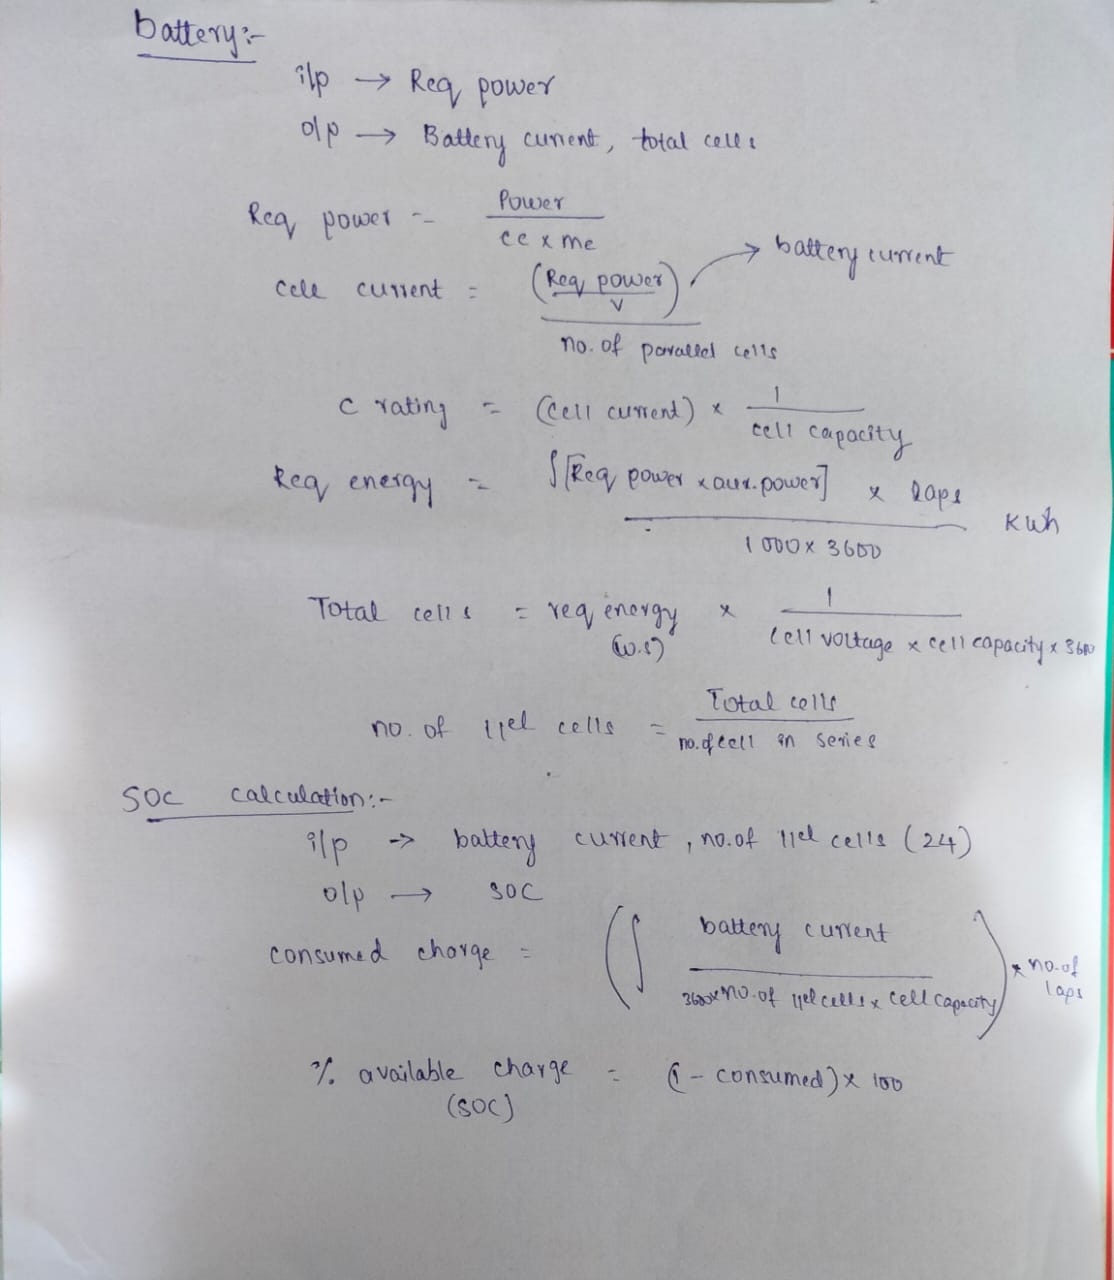 Battery:-
i/p → Req power
o/p → Battery current, total cells
Req power -- Power / (ce x me)
cell current = (Req power / V) / no. of parallel cells → battery current
C rating = (Cell current) x 1 / cell capacity
Req energy = ∫[Req power x aux.power] x laps / (1000 x 3600) Kwh
Total cells = req energy (w.s) x 1 / (cell voltage x cell capacity x 3600)
no. of llel cells = Total cells / no.of cell in series
SOC calculation:-
i/p -> battery current, no.of llel cells (24)
o/p → SOC
consumed charge = (∫ battery current / (3600 x no.of llel cells x cell capacity)) x no.of laps
% available charge = (1 - consumed) x 100
(SOC)